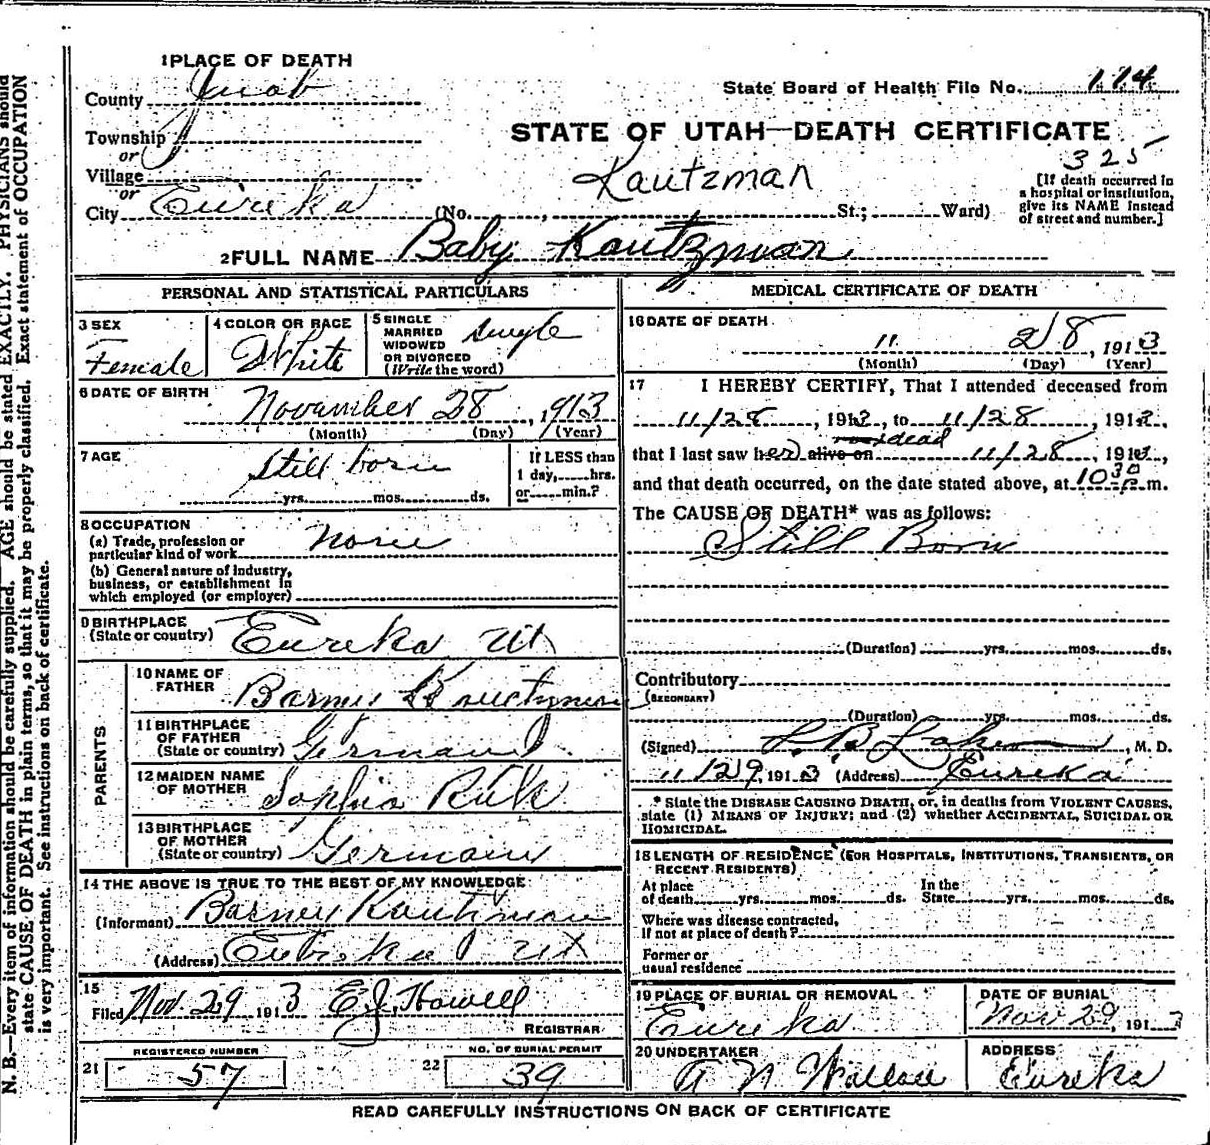 1 PLACE OF DEATH
County Juab
State Board of Health File No. 114
Township
or
STATE OF UTAH—DEATH CERTIFICATE
325
Village
or
Kautzman
[If death occurred in
a hospital or institution,
give its NAME instead
of street and number.]
City Eureka (No. , St.; Ward)
2 FULL NAME Baby Kautzman
PERSONAL AND STATISTICAL PARTICULARS
3 SEX
Female
4 COLOR OR RACE
White
5 SINGLE
MARRIED
WIDOWED
OR DIVORCED
(Write the word)
Single
6 DATE OF BIRTH
November 28, 1913
(Month) (Day) (Year)
7 AGE
Still born
yrs. mos. ds.
If LESS than
1 day, hrs.
or min.?
8 OCCUPATION
(a) Trade, profession or
particular kind of work None
(b) General nature of industry,
business, or establishment in
which employed (or employer)
9 BIRTHPLACE
(State or country) Eureka Ut
PARENTS
10 NAME OF
FATHER
Barney Kautzman
11 BIRTHPLACE
OF FATHER
(State or country) Germany
12 MAIDEN NAME
OF MOTHER
Sophia
13 BIRTHPLACE
OF MOTHER
(State or country) Germany
14 THE ABOVE IS TRUE TO THE BEST OF MY KNOWLEDGE
(Informant) Barney Kautzman
(Address) Eureka Ut
15
Filed Nov. 29 1913 E J Howell
REGISTRAR
REGISTERED NUMBER
21 57
NO. OF BURIAL PERMIT
22 39
MEDICAL CERTIFICATE OF DEATH
16 DATE OF DEATH
11 28, 1913
(Month) (Day) (Year)
17 I HEREBY CERTIFY, That I attended deceased from
11/28, 1913, to 11/28, 1913,
dead
that I last saw her alive on 11/28, 1913,
and that death occurred, on the date stated above, at 10 30 P. m.
The CAUSE OF DEATH* was as follows:
Still Born
(Duration) yrs. mos. ds.
Contributory
(SECONDARY)
(Duration) yrs. mos. ds.
(Signed) , M. D.
11/29, 1913 (Address) Eureka
* State the DISEASE CAUSING DEATH, or, in deaths from VIOLENT CAUSES,
state (1) MEANS OF INJURY; and (2) whether ACCIDENTAL, SUICIDAL OR
HOMICIDAL.
18 LENGTH OF RESIDENCE (FOR HOSPITALS, INSTITUTIONS, TRANSIENTS, OR
RECENT RESIDENTS)
At place
of death yrs. mos. ds.
In the
State yrs. mos. ds.
Where was disease contracted,
If not at place of death?
Former or
usual residence
19 PLACE OF BURIAL OR REMOVAL
Eureka
DATE OF BURIAL
Nov 29, 1913
20 UNDERTAKER
A N Wallace
ADDRESS
Eureka
READ CAREFULLY INSTRUCTIONS ON BACK OF CERTIFICATE
N. B.—Every item of information should be carefully supplied. AGE should be stated EXACTLY. PHYSICIANS should
state CAUSE OF DEATH in plain terms, so that it may be properly classified. Exact statement of OCCUPATION
is very important. See instructions on back of certificate.